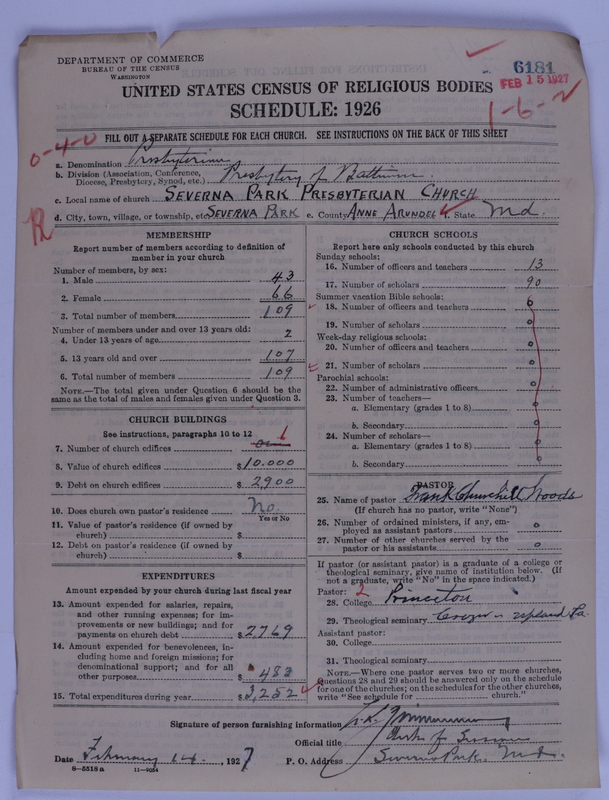 DEPARTMENT OF COMMERCE
BUREAU OF THE CENSUS
WASHINGTON
6181
FEB 15 1927
UNITED STATES CENSUS OF RELIGIOUS BODIES
SCHEDULE: 1926
1-6-2
FILL OUT A SEPARATE SCHEDULE FOR EACH CHURCH. SEE INSTRUCTIONS ON THE BACK OF THIS SHEET
0-4-0
a. Denomination Presbyterian
b. Division (Association, Conference, Diocese, Presbytery, Synod, etc.) Presbytery of Baltimore
c. Local name of church SEVERNA PARK PRESBYTERIAN CHURCH
d. City, town, village, or township, etc. SEVERNA PARK e. County ANNE ARUNDEL f. State Md.
MEMBERSHIP
Report number of members according to definition of
member in your church
Number of members, by sex:
1. Male 43
2. Female 66
3. Total number of members 109
Number of members under and over 13 years old:
4. Under 13 years of age 2
5. 13 years old and over 107
6. Total number of members 109
NOTE.—The total given under Question 6 should be the
same as the total of males and females given under Question 3.
CHURCH BUILDINGS
See instructions, paragraphs 10 to 12
7. Number of church edifices one 1
8. Value of church edifices $10.000
9. Debt on church edifices $2900
10. Does church own pastor's residence No.
Yes or No
11. Value of pastor's residence (if owned by
church) $
12. Debt on pastor's residence (if owned by
church) $
EXPENDITURES
Amount expended by your church during last fiscal year
13. Amount expended for salaries, repairs,
and other running expenses; for im-
provements or new buildings; and for
payments on church debt $2769
14. Amount expended for benevolences, in-
cluding home and foreign missions; for
denominational support; and for all
other purposes $483
15. Total expenditures during year $3,252
CHURCH SCHOOLS
Report here only schools conducted by this church
Sunday schools:
16. Number of officers and teachers 13
17. Number of scholars 90
Summer vacation Bible schools:
18. Number of officers and teachers 0
19. Number of scholars 0
Week-day religious schools:
20. Number of officers and teachers 0
21. Number of scholars 0
Parochial schools:
22. Number of administrative officers 0
23. Number of teachers—
a. Elementary (grades 1 to 8) 0
b. Secondary 0
24. Number of scholars—
a. Elementary (grades 1 to 8) 0
b. Secondary 0
PASTOR
25. Name of pastor Frank Churchill Woods
(If church has no pastor, write "None")
26. Number of ordained ministers, if any, em-
ployed as assistant pastors 0
27. Number of other churches served by the
pastor or his assistants 0
If pastor (or assistant pastor) is a graduate of a college or
theological seminary, give name of institution below. (If
not a graduate, write "No" in the space indicated.)
Pastor: 2
28. College Princeton
29. Theological seminary Crozer - Upland Pa.
Assistant pastor:
30. College
31. Theological seminary
NOTE.—Where one pastor serves two or more churches,
Questions 28 and 29 should be answered only on the schedule
for one of the churches; on the schedules for the other churches,
write "See schedule for church."
Signature of person furnishing information
Official title Clerk of Session
Date February 14, 1927 P. O. Address Severna Park, Md.
8—5518a 11—9054